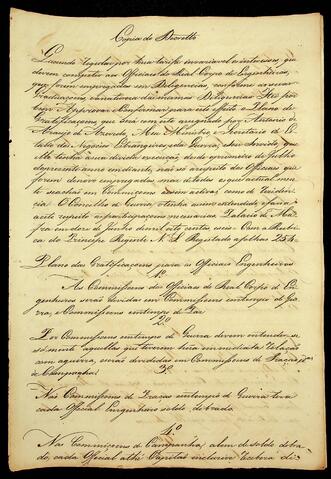 Copia do Decretto
Querendo regular por huma tarifa invariavel os interesses, que
devem competir aos Officiaes do Real Corpo de Engenheiros,
que forem empregados em Deligencias, conforme as suas
Graduaçoens e a natureza das mesmas Deligencias: Hei por
bem Approvar e Confirmar para este effeito o Plano de
Gratificaçoens que será com este assignado por Antonio de
Araujo de Azevedo, Meu Ministro e Secretario d'Es
tado dos Negocios Estrangeiros e da Guerra; e Sou Servido, que
elle tenha a sua devida execução, desde o primeiro de Julho
do prezente anno em diante, não só a respeito dos Officiaes que
forem de novo empregados, mas tãobem os que actualmen
te se achão em Commissoens assim activas, como de rezidencia
cia. O Conselho de Guerra o tenha assim entendido, e faça a
este respeito as participaçoens necessarias. Palacio de Ma
fra em doze de Junho de mil oito centos e seis. Com a Rubri
ca do Principe Regente N. S. Registado a folhas 254.
Plano das Gratificaçoens para os Officiaes Engenheiros
1º
As Commissoens dos Officiaes do Real Corpo d'En
genheiros serão devidas em Commissoens em tempo de Guer
ra, e Commissoens em tempo de Paz
2º
Por Commissoens em tempo de Guerra devem entender-se
só mente aquellas que tiverem huma immediata relação
com a guerra, e serão divididas em Commissoens de Praças, e
de Campanha.
3º
Nas Commissoens de Praças em tempo de Guerra terá
cada Official Engenheiro soldo dobrado.
4º
Nas Commissoens de Campanha, alem do soldo dobra
do, cada Official athé Capitão inclusive receberá di-